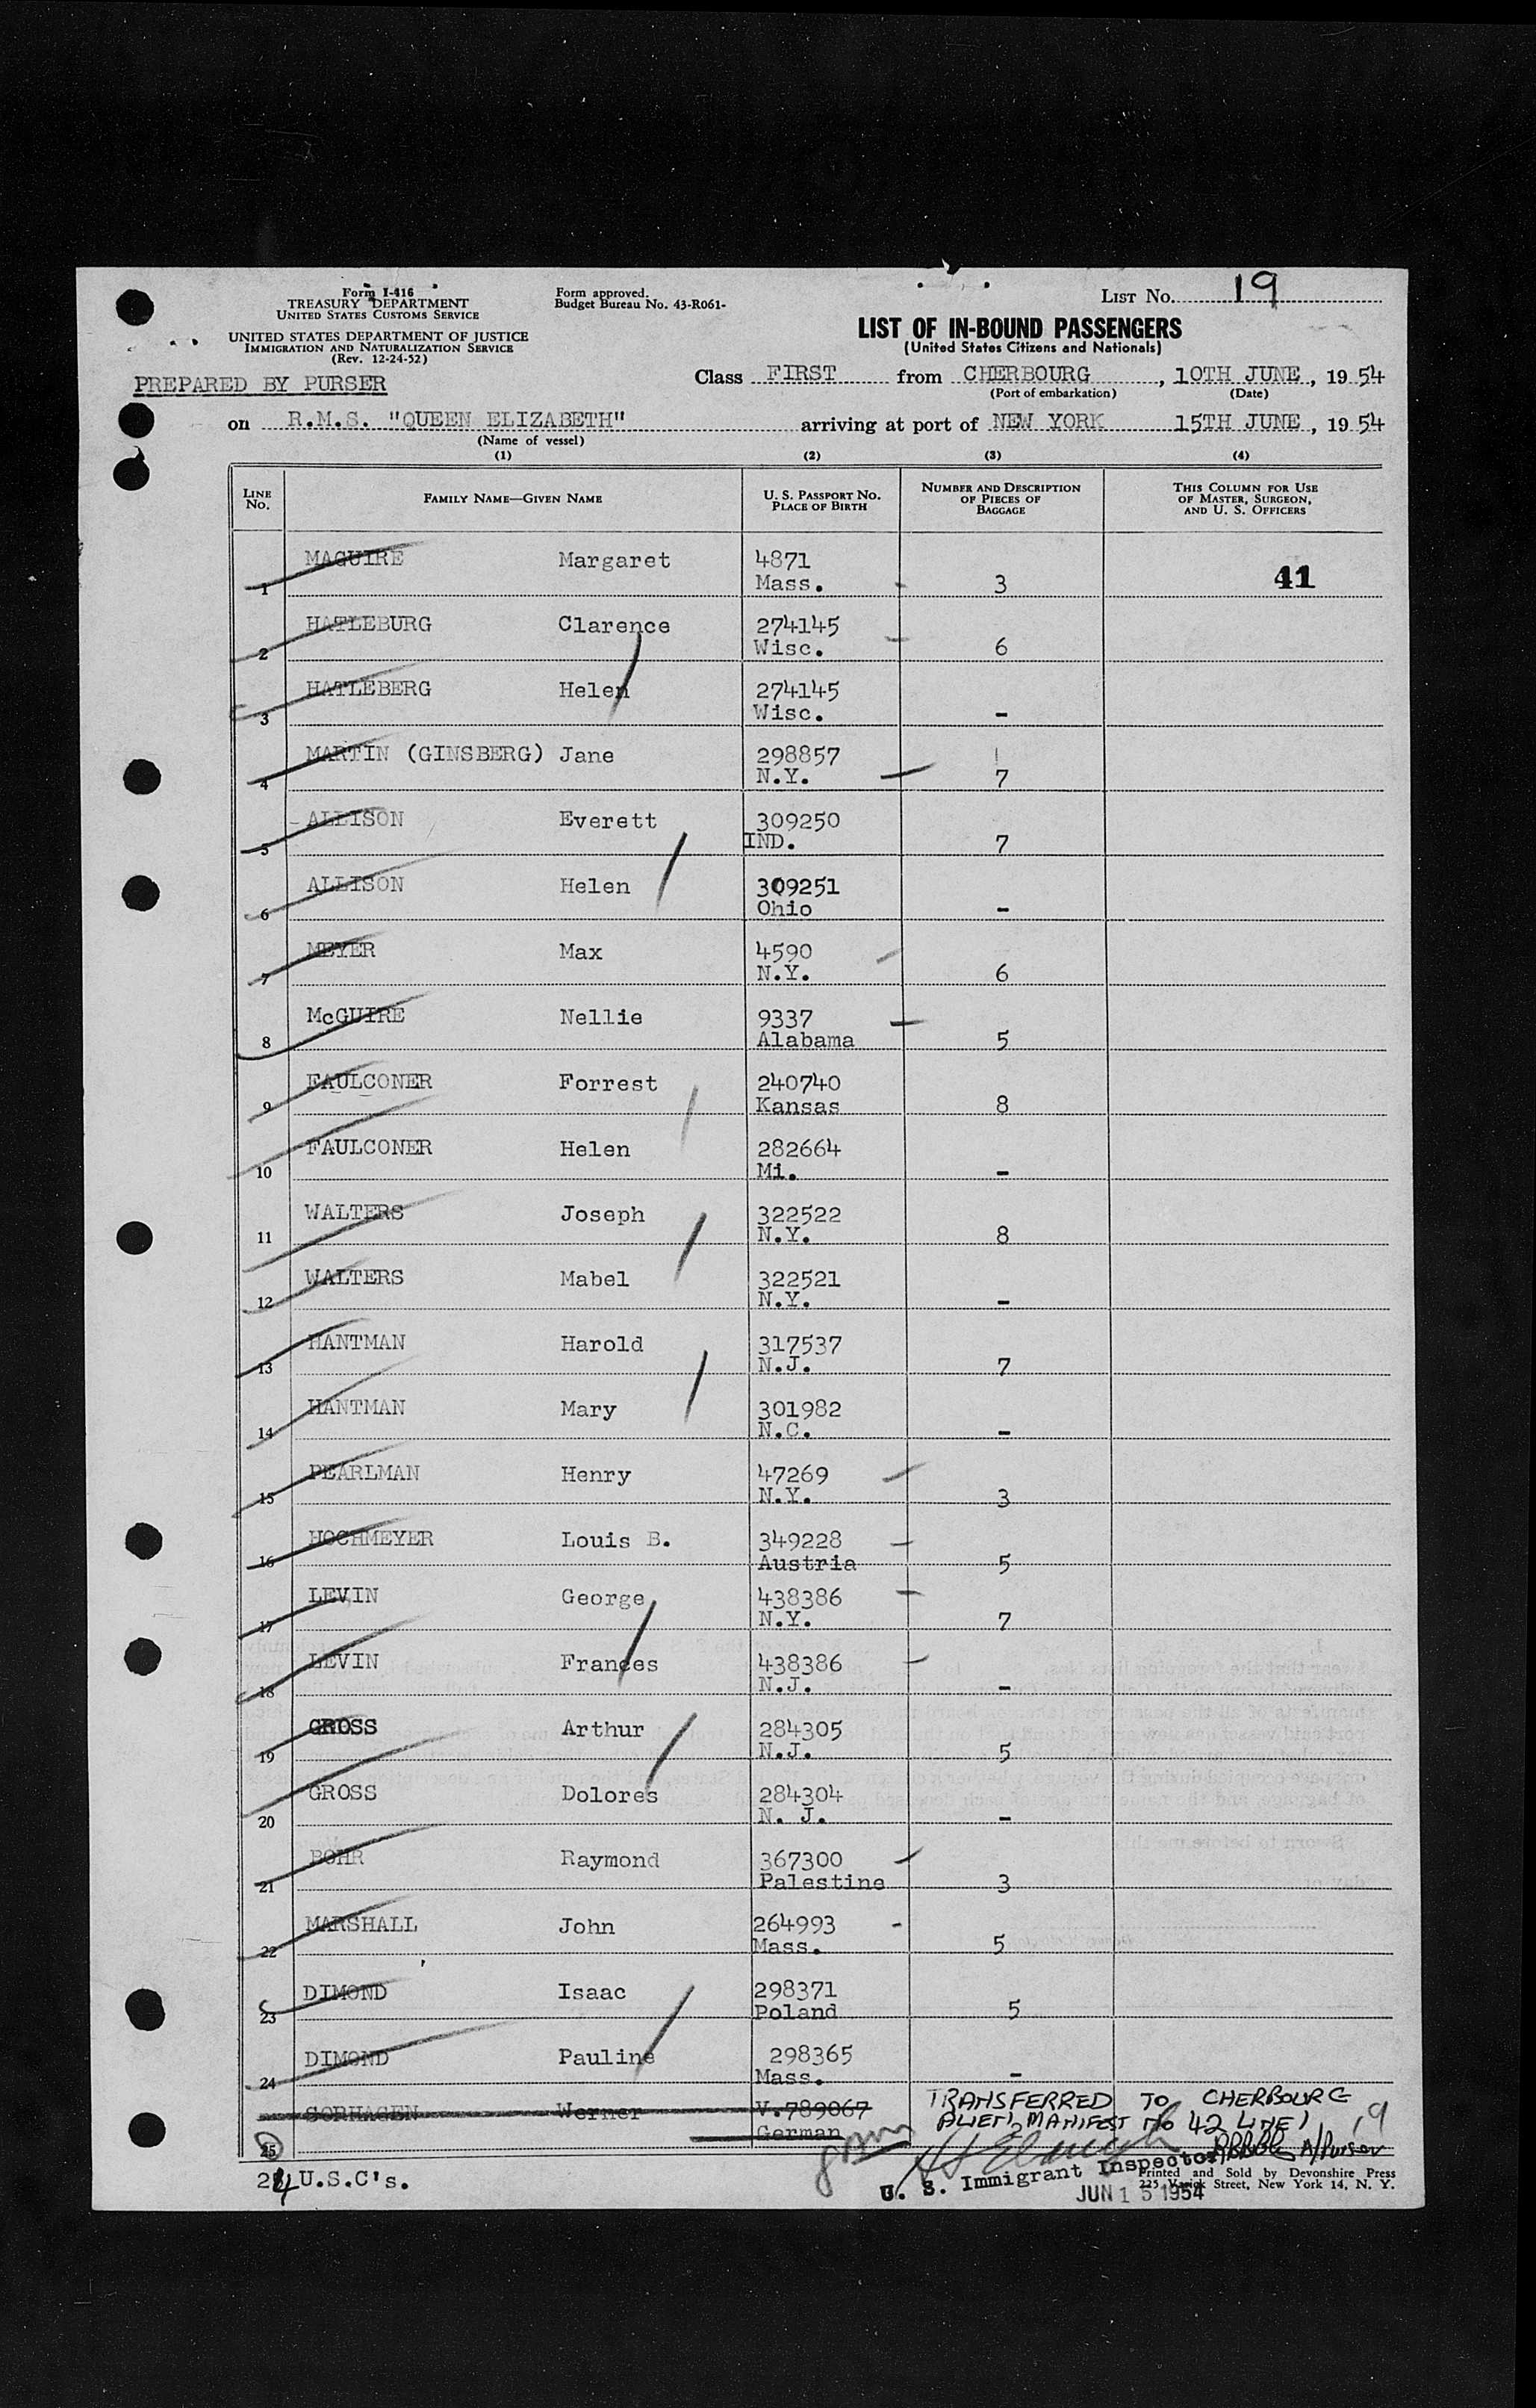 Form I-416
TREASURY DEPARTMENT
UNITED STATES CUSTOMS SERVICE
UNITED STATES DEPARTMENT OF JUSTICE
IMMIGRATION AND NATURALIZATION SERVICE
(Rev. 12-24-52)
Form approved.
Budget Bureau No. 43-R061-
LIST NO. 19
LIST OF IN-BOUND PASSENGERS
(United States Citizens and Nationals)
PREPARED BY PURSER
Class FIRST from CHERBOURG, 10TH JUNE, 1954
(Port of embarkation) (Date)
on R.M.S. "QUEEN ELIZABETH" arriving at port of NEW YORK 15TH JUNE, 1954
(Name of vessel)
(1) (2) (3) (4)
LINE NO. FAMILY NAME—GIVEN NAME U. S. PASSPORT NO. PLACE OF BIRTH NUMBER AND DESCRIPTION OF PIECES OF BAGGAGE THIS COLUMN FOR USE OF MASTER, SURGEON, AND U. S. OFFICERS
1 MAGUIRE Margaret 4871 Mass. 3 41
2 HATLEBURG Clarence 274145 Wisc. 6
3 HATLEBERG Helen 274145 Wisc. -
4 MARTIN (GINSBERG) Jane 298857 N.Y. 7
5 ALLISON Everett 309250 IND. 7
6 ALLISON Helen 309251 Ohio -
7 MEYER Max 4590 N.Y. 6
8 McGUIRE Nellie 9337 Alabama 5
9 FAULCONER Forrest 240740 Kansas 8
10 FAULCONER Helen 282664 Mi. -
11 WALTERS Joseph 322522 N.Y. 8
12 WALTERS Mabel 322521 N.Y. -
13 HANTMAN Harold 317537 N.J. 7
14 HANTMAN Mary 301982 N.C. -
15 PEARLMAN Henry 47269 N.Y. 3
16 HOCHMEYER Louis B. 349228 Austria 5
17 LEVIN George 438386 N.Y. 7
18 LEVIN Frances 438386 N.J. -
19 GROSS Arthur 284305 N.J. 5
20 GROSS Dolores 284304 N. J. -
21 BOHR Raymond 367300 Palestine 3
22 MARSHALL John 264993 Mass. 5
23 DIMOND Isaac 298371 Poland 5
24 DIMOND Pauline 298365 Mass. -
25 SORHAGEN Werner V.789067 German
TRANSFERRED TO CHERBOURG
ALIEN MANIFEST NO 42 LINE 1 19
A/Purser
24 U.S.C's.
U. S. Immigrant Inspector
JUN 15 1954
Printed and Sold by Devonshire Press
225 Varick Street, New York 14, N. Y.